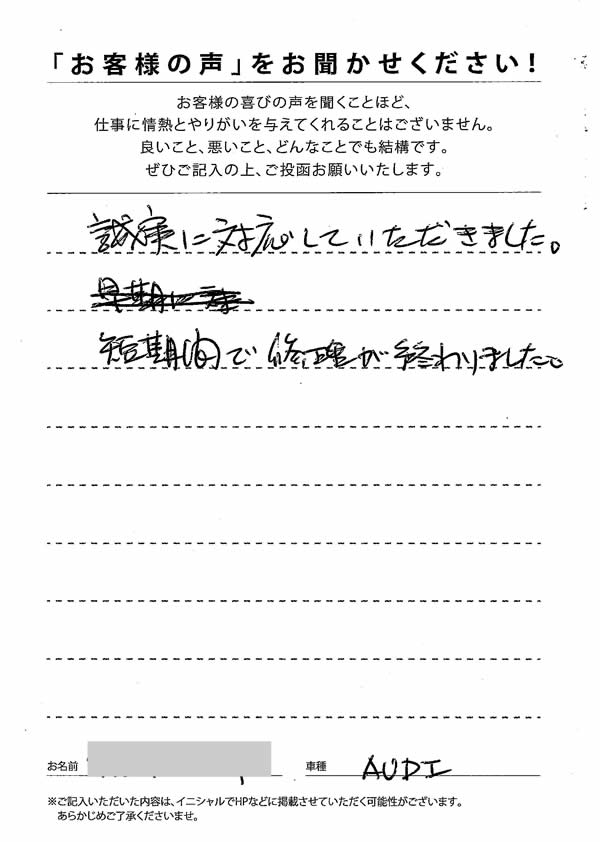 「お客様の声」をお聞かせください！
お客様の喜びの声を聞くことほど、
仕事に情熱とやりがいを与えてくれることはございません。
良いこと、悪いこと、どんなことでも結構です。
ぜひご記入の上、ご投函お願いいたします。
誠実に対応していただきました。
短期間で修理が終わりました。
お名前
車種 AUDI
※ご記入いただいた内容は、イニシャルでHPなどに掲載させていただく可能性がございます。
あらかじめご了承くださいませ。